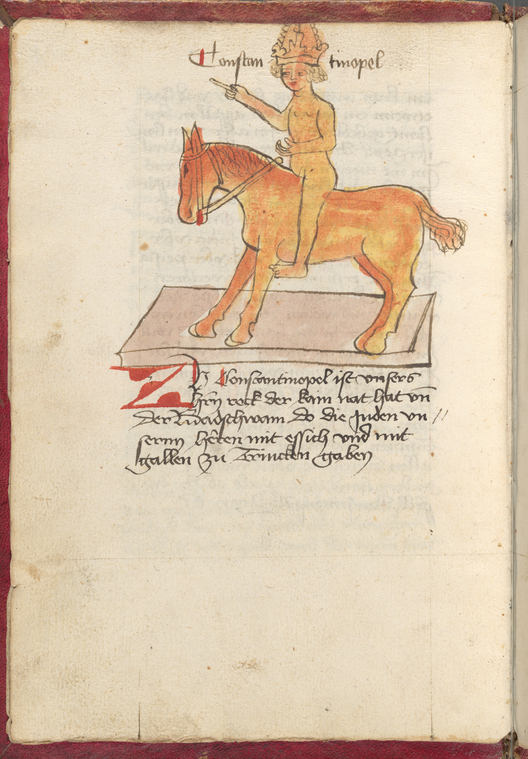 Constan tinopel
Zu Constantinopel ist unsers
hern rock der kain nat hat vn̄
der Badschwam do die Juden vn //
serm heren mit essich vnd mit
gallen zu Trincken gaben